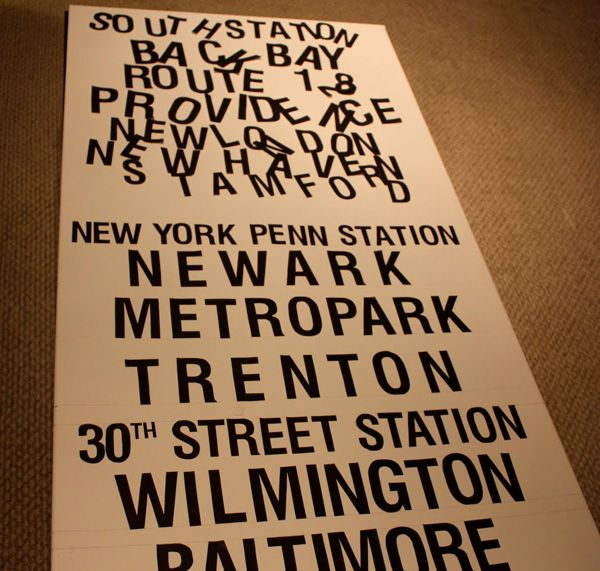 SOUTH STATION
BACK BAY
ROUTE 128
PROVIDENCE
NEW LONDON
NEW HAVERN
STAMFORD
NEW YORK PENN STATION
NEWARK
METROPARK
TRENTON
30TH STREET STATION
WILMINGTON
BALTIMORE